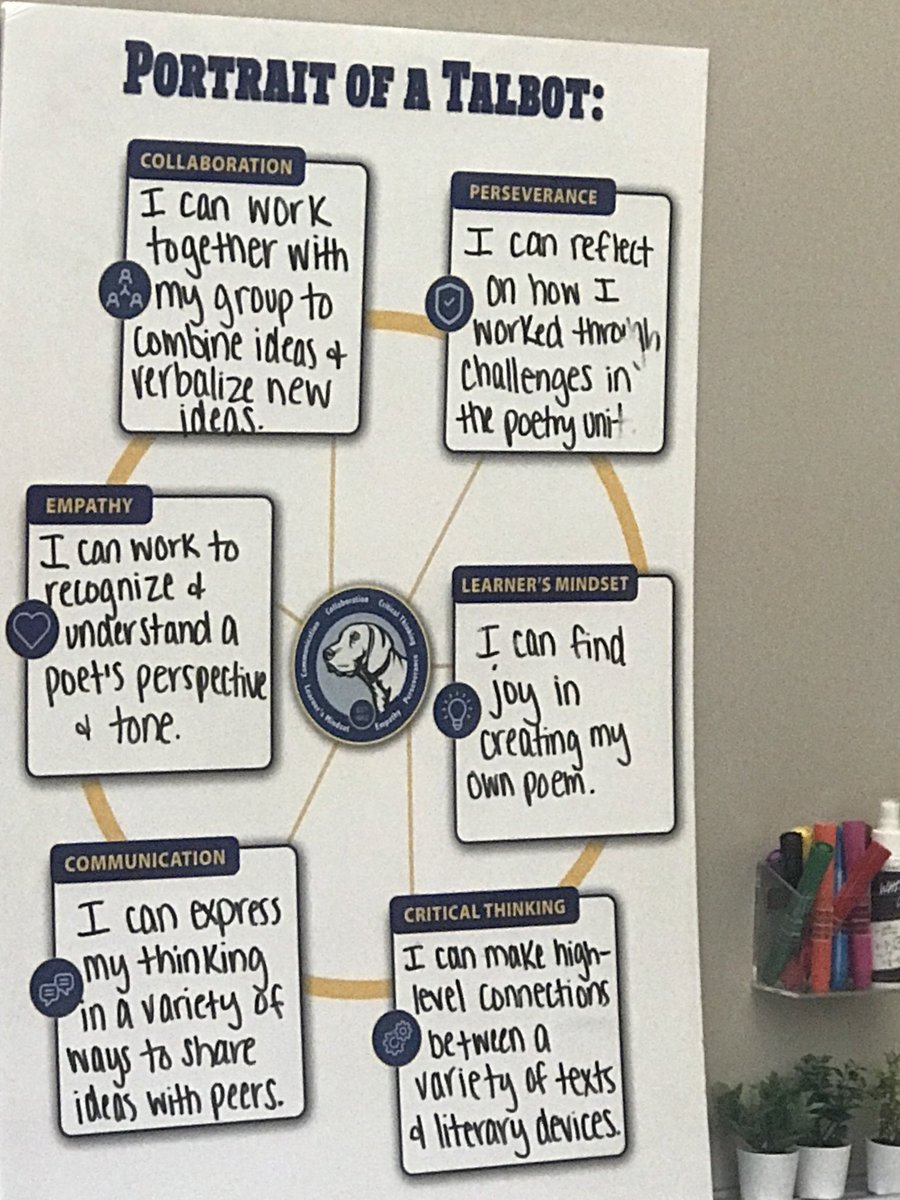 PORTRAIT OF A TALBOT:
COLLABORATION
I can work
together with
my group to
combine ideas &
verbalize new
ideas.
PERSEVERANCE
I can reflect
on how I
worked through
challenges in
the poetry unit
EMPATHY
I can work to
recognize &
understand a
poet's perspective
& tone.
LEARNER'S MINDSET
I can find
joy in
creating my
own poem.
Communication Collaboration Critical Thinking
Learner's Mindset Empathy Perseverance
COMMUNICATION
I can express
my thinking
in a variety of
ways to share
ideas with peers.
CRITICAL THINKING
I can make high-
level connections
between a
variety of texts
& literary devices.